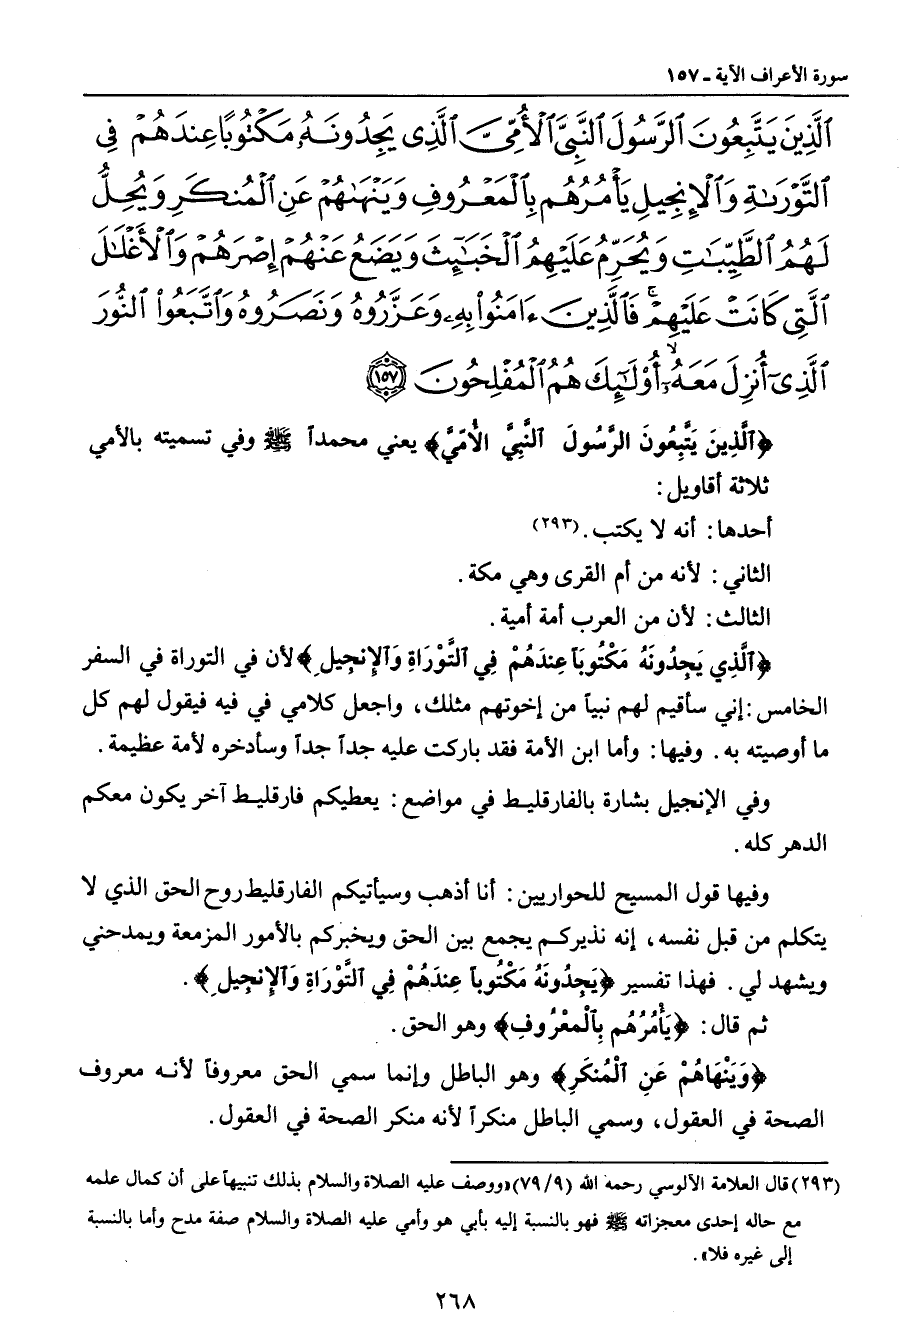 سورة الأعراف الآية ـ ١٥٧
ٱلَّذِينَ يَتَّبِعُونَ ٱلرَّسُولَ ٱلنَّبِىَّ ٱلْأُمِّىَّ ٱلَّذِى يَجِدُونَهُۥ مَكْتُوبًا عِندَهُمْ فِى
ٱلتَّوْرَىٰةِ وَٱلْإِنجِيلِ يَأْمُرُهُم بِٱلْمَعْرُوفِ وَيَنْهَىٰهُمْ عَنِ ٱلْمُنكَرِ وَيُحِلُّ
لَهُمُ ٱلطَّيِّبَٰتِ وَيُحَرِّمُ عَلَيْهِمُ ٱلْخَبَٰٓئِثَ وَيَضَعُ عَنْهُمْ إِصْرَهُمْ وَٱلْأَغْلَٰلَ
ٱلَّتِى كَانَتْ عَلَيْهِمْ ۚ فَٱلَّذِينَ ءَامَنُوا۟ بِهِۦ وَعَزَّرُوهُ وَنَصَرُوهُ وَٱتَّبَعُوا۟ ٱلنُّورَ
ٱلَّذِىٓ أُنزِلَ مَعَهُۥٓ ۙ أُو۟لَٰٓئِكَ هُمُ ٱلْمُفْلِحُونَ ﴿١٥٧﴾
﴿ٱلَّذِينَ يَتَّبِعُونَ الرَّسُولَ ٱلنَّبِيَّ الْأُمِّيَّ﴾ يعني محمداً ﷺ وفي تسميته بالأمي
ثلاثة أقاويل :
أحدها : أنه لا يكتب . (٢٩٣)
الثاني : لأنه من أم القرى وهي مكة .
الثالث : لأن من العرب أمة أمية .
﴿ٱلَّذِي يَجِدُونَهُ مَكْتُوبَاً عِندَهُمْ فِي ٱلتَّوْرَاةِ وَٱلْإِنجِيلِ﴾ لأن في التوراة في السفر
الخامس : إني سأقيم لهم نبياً من إخوتهم مثلك ، واجعل كلامي في فيه فيقول لهم كل
ما أوصيته به . وفيها : وأما ابن الأمة فقد باركت عليه جداً جداً وسأدخره لأمة عظيمة .
وفي الإنجيل بشارة بالفارقليط في مواضع : يعطيكم فارقليط آخر يكون معكم
الدهر كله .
وفيها قول المسيح للحواريين : أنا أذهب وسيأتيكم الفارقليط روح الحق الذي لا
يتكلم من قبل نفسه ، إنه نذيركم يجمع بين الحق ويخبركم بالأمور المزمعة ويمدحني
ويشهد لي . فهذا تفسير ﴿يَجِدُونَهُ مَكْتُوباً عِندَهُمْ فِي ٱلتَّوْرَاةِ وَٱلْإِنجِيلِ﴾ .
ثم قال : ﴿يَأْمُرُهُم بِٱلْمَعْرُوفِ﴾ وهو الحق .
﴿وَيَنْهَاهُمْ عَنِ ٱلْمُنكَرِ﴾ وهو الباطل وإنما سمي الحق معروفاً لأنه معروف
الصحة في العقول ، وسمي الباطل منكراً لأنه منكر الصحة في العقول .
(٢٩٣) قال العلامة الآلوسي رحمه الله (٧٩/٩) «ووصف عليه الصلاة والسلام بذلك تنبيهاً على أن كمال علمه
مع حاله إحدى معجزاته ﷺ فهو بالنسبة إليه بأبي هو وأمي عليه الصلاة والسلام صفة مدح وأما بالنسبة
إلى غيره فلا» .
٢٦٨